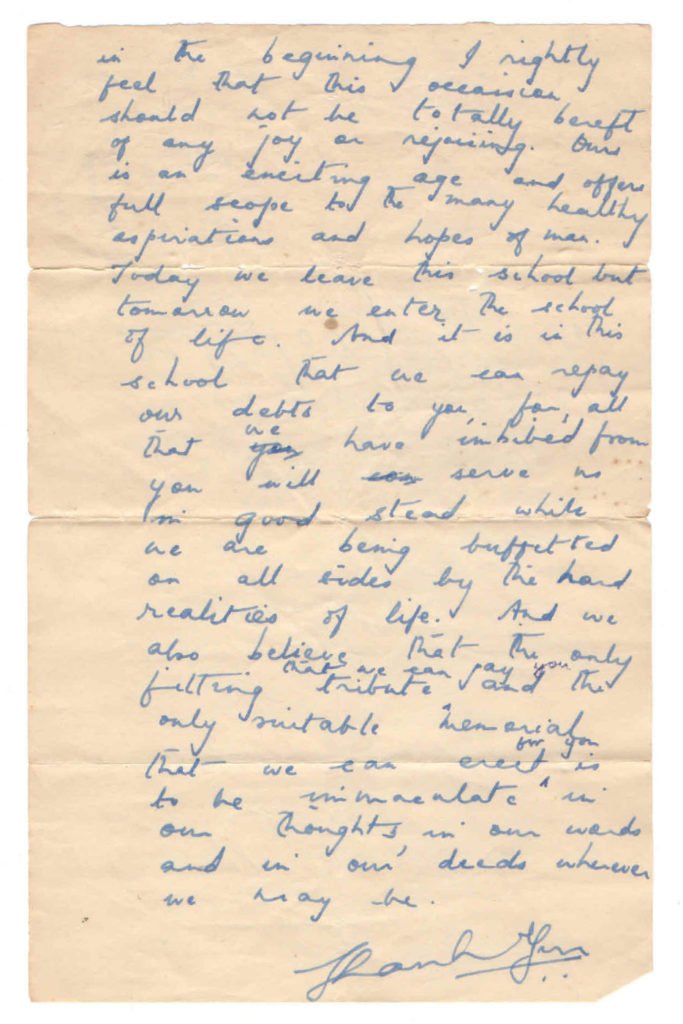 in the beginning I rightly
feel that this occaision
should not be totally bereft
of any joy or rejoicing. Ours
is an exciting age and offers
full scope to the many healthy
aspirations and hopes of man.
Today we leave this school but
tomorrow we enter the school
of life. And it is in this
school that we can repay
our debts to you, for, all
that you we have imbibed from
you will con serve us
in good stead while
we are being buffetted
on all sides by the hard
realities of life. And we
also believe that the only
fitting tribute that we can pay you and the
only suitable memorial
that we can erect for you is
to be immaculate in
our thoughts, in our words
and in our deeds wherever
we may be.
Thank You